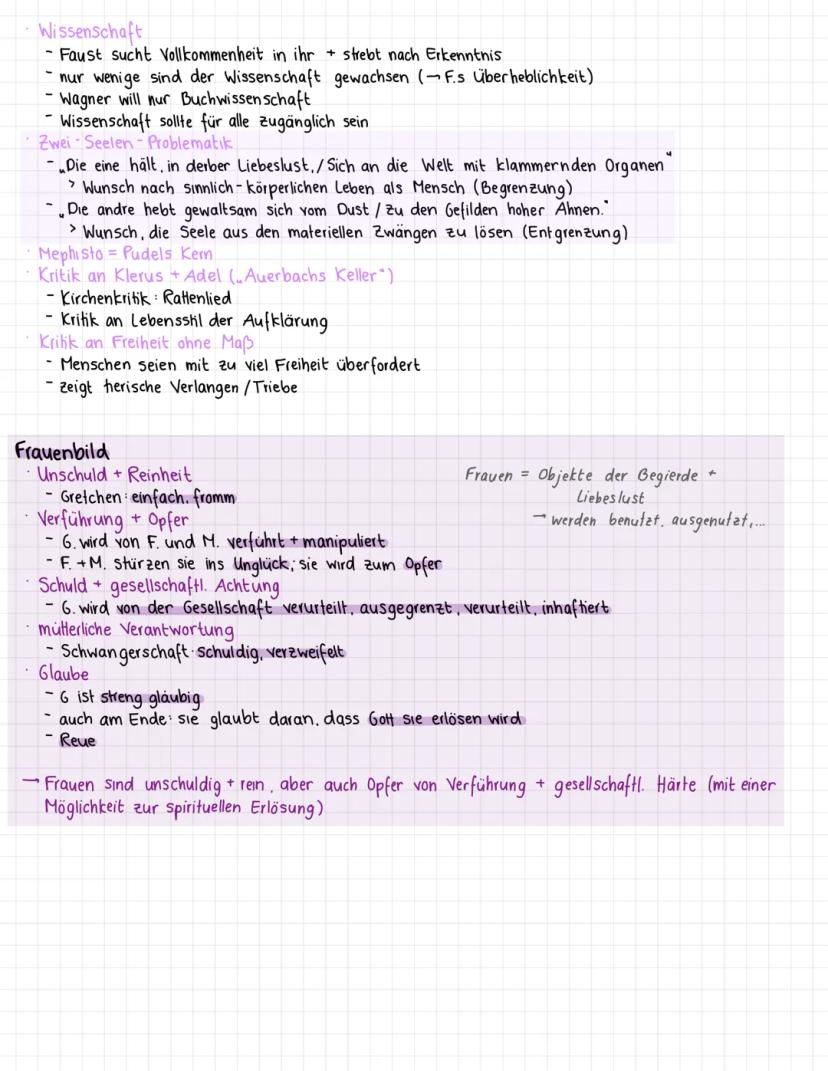 · Wissenschaft
- Faust sucht Vollkommenheit in ihr + strebt nach Erkenntnis
- nur wenige sind der Wissenschaft gewachsen (→ F.s Überheblichkeit)
- Wagner will nur Buchwissenschaft
- Wissenschaft sollte für alle zugänglich sein
· Zwei-Seelen-Problematik
- „Die eine hält, in derber Liebeslust,/Sich an die Welt mit klammernden Organen"
> Wunsch nach sinnlich-körperlichen Leben als Mensch (Begrenzung)
- „Die andre hebt gewaltsam sich vom Dust / Zu den Gefilden hoher Ahnen."
> Wunsch, die Seele aus den materiellen Zwängen zu lösen (Entgrenzung)
· Mephisto = Pudels Kern
· Kritik an Klerus + Adel („Auerbachs Keller")
- Kirchenkritik: Rattenlied
- Kritik an Lebensstil der Aufklärung
· Kritik an Freiheit ohne Maß
- Menschen seien mit zu viel Freiheit überfordert
- zeigt tierische Verlangen/Triebe
Frauenbild
· Unschuld + Reinheit
- Gretchen: einfach, fromm
Frauen = Objekte der Begierde +
Liebeslust
→ werden benutzt, ausgenutzt,...
· Verführung + Opfer
- G. wird von F. und M. verführt + manipuliert
- F. + M. stürzen sie ins Unglück; sie wird zum Opfer
· Schuld + gesellschaftl. Achtung
- G. wird von der Gesellschaft verurteilt, ausgegrenzt, verurteilt, inhaftiert
· mütterliche Verantwortung
- Schwangerschaft: schuldig, verzweifelt
· Glaube
- G ist streng gläubig
- auch am Ende: sie glaubt daran, dass Gott sie erlösen wird
- Reue
→ Frauen sind unschuldig + rein, aber auch Opfer von Verführung + gesellschaftl. Härte (mit einer
Möglichkeit zur spirituellen Erlösung)